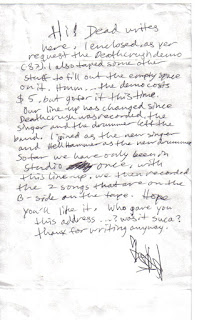 Hi! Dead writes
here, I enclosed, as per
request the Deathcrush demo
(87). I also taped some other
stuff to fill out the empty space
on it. Hmm... the demo costs
$5, but for it this time.
Our line up has changed since
Deathcrush was recorded, the
singer and the drummer left the
band. I joined as the new singer
and Hellhammer as the new drummer
So far we have only been in
studio once, with
this line up, we then recorded
the 2 songs that are on the
B-side on the tape. Hope
you'll like it. Who gave you
this address...? was it
thanx for writing anyway.